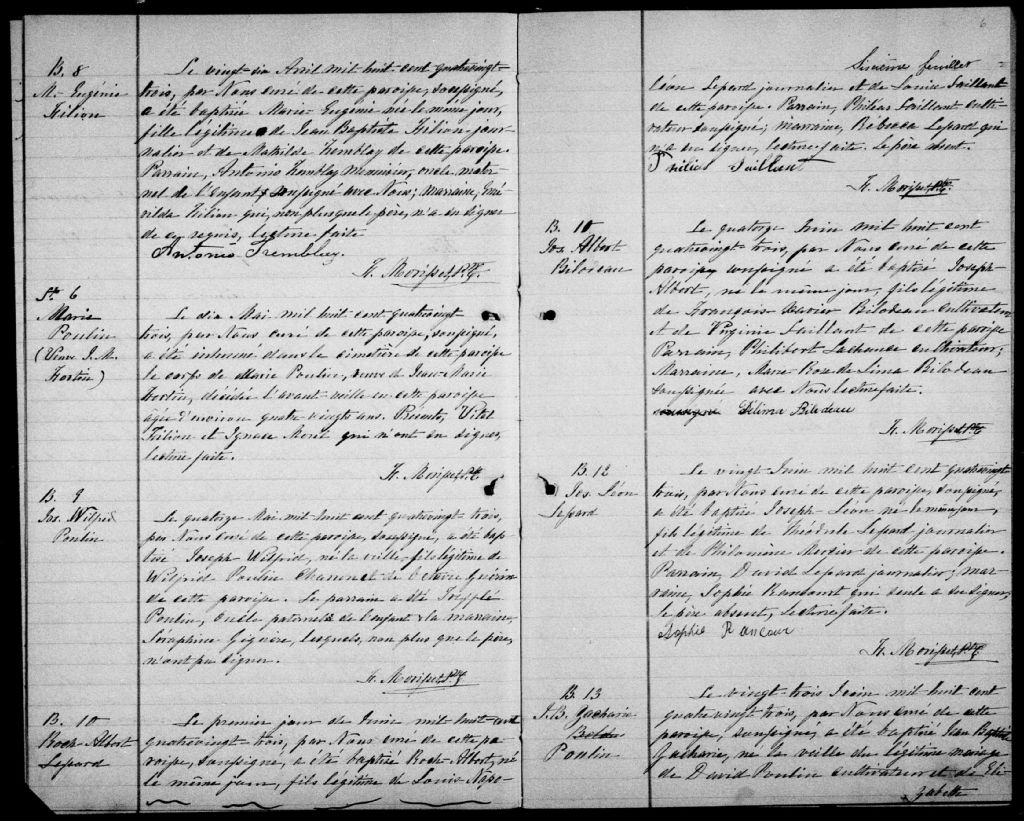 B. 8
M. Eugénie
Filion
Le vingt six Avril mil huit cent quatrevingt-
trois, par Nous curé de cette paroisse, soussigné,
a été baptisé Marie Eugénie née le même jour,
fille légitime de Jean Baptiste Filion jour-
nalier et de Mathilde Tremblay de cette paroisse.
Parrain, Antonio Tremblay Menuisier, oncle mater-
nel de l'Enfant soussigné avec Nous; marraine,
Filion qui, non plus que le père, n'a su signer
de ce requis, lecture faite
Antonio Tremblay.
F. Morisset, Ptre
St. 6
Marie
Poulin
(Veuve J. M.
Fortin)
Le dix Mai mil huit cent quatrevingt
trois, par Nous curé de cette paroisse, soussigné,
a été inhumé dans le cimetière de cette paroisse
le corps de Marie Poulin, veuve d Jean-Marie
Fortin, décédée l'avant-veille en cette paroisse
agée d'environ quatre vingts ans. Présents, Vital
Filion et Ignace Moret qui n'ont su signer,
lecture faite.
F. Morisset, Ptre
B. 9
Jos. Wilfrid
Poulin
Le quatorze Mai mil huit cent quatrevingt trois,
par Nous curé de cette paroisse, soussigné, a été bap-
tisé Joseph Wilfrid, né la veille fils légitime de
Wilfrid Poulin Charron et de Octavie Guérin
de cette paroisse. Le parrain a été
Poulin, Oncle paternel de l'enfant & la marraine,
Séraphine Giguère, lesquels, non plus que le père,
n'ont pu signer.
F. Morisset, Ptre
B. 10
Roch-Albert
Lepard
Le premier jour de Juin mil huit cent
quatrevingt trois, par Nous curé de cette pa-
roisse, soussigné, a été baptisé Roch Albert, né
le même jour, fils légitime de Louis Napo-
6
Sixième feuillet
léon Lepard journalier et de Louise Saillant
de cette paroisse. Parrain, Philéas Saillant culti-
vateur soussigné; marraine, Rébecca Lepard qui
n'a su signer, lecture faite. Le père absent.
Saillant
F. Morisset, Ptre
B. 10
Jos. Albert
Bilodeau
Le quatorze Juin mil huit cent
quatrevingt trois, par Nous curé de cette
paroisse, soussigné a été baptisé Joseph
Albert, né le même jour, fils légitime
de François Xavier Bilodeau cultivateur
et de Virginie Saillant de cette paroisse
Parrain, Philibert Lachance cultivateur;
Marraine, Marie Rose de Lima Bilodeau
soussignée avec Nous lecture faite.
Délima Bilodeau
F. Morisset, Ptre
B. 12
Jos. Léon
Lepard
Le vingt Juin mil huit cent quatrevingt
trois, par Nous curé de cette paroisse, soussigné,
a été baptisé Joseph Léon né le même jour,
fils légitime de Théodule Lepard journalier
et de Philomène Mercier de cette paroisse.
Parrain, David Lepard journalier; mar-
raine, Sophie Rancourt qui seule a su signer,
le père absent, Lecture faite.
Sophie Rancour
F. Morisset, Ptre
B. 13
J. B. Zacharie
Poulin
Le vingt trois Juin mil huit cent
quatrevingt trois, par Nous curé de cette
paroisse, soussigné, a été baptisé Jean Baptiste
Zacharie, né la veille de légitime mariage
de David Poulin cultivateur et de Eli-
zabeth